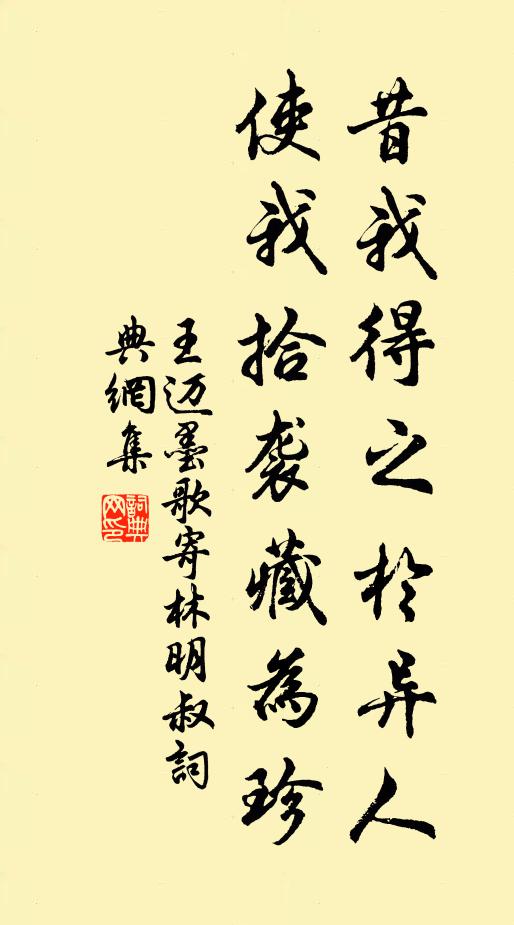 昔我得之於异人
使我拾袭藏為珍
王迈墨歌寄林明叔詞
典網集
詞典網印